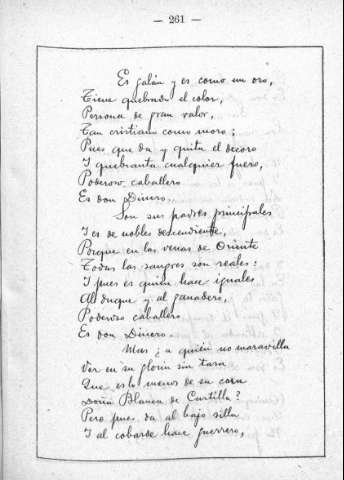 — 261 —
Es galán y es como un oro,
Tiene quebrado el color,
Persona de gran valor,
Tan cristiano como moro;
Pues que da y quita el decoro
Y quebranta cualquier fuero,
Poderoso caballero
Es don Dinero.
Son sus padres principales
Y es de nobles descendiente,
Porque en las venas de Oriente
Todas las sangres son reales:
Y pues es quien hace iguales
Al duque y al ganadero,
Poderoso caballero
Es don Dinero.
Mas ¿a quién no maravilla
Ver en su gloria sin tasa
Que es lo menos de su casa
Doña Blanca de Castilla?
Pero pues da al bajo silla
Y al cobarde hace guerrero,